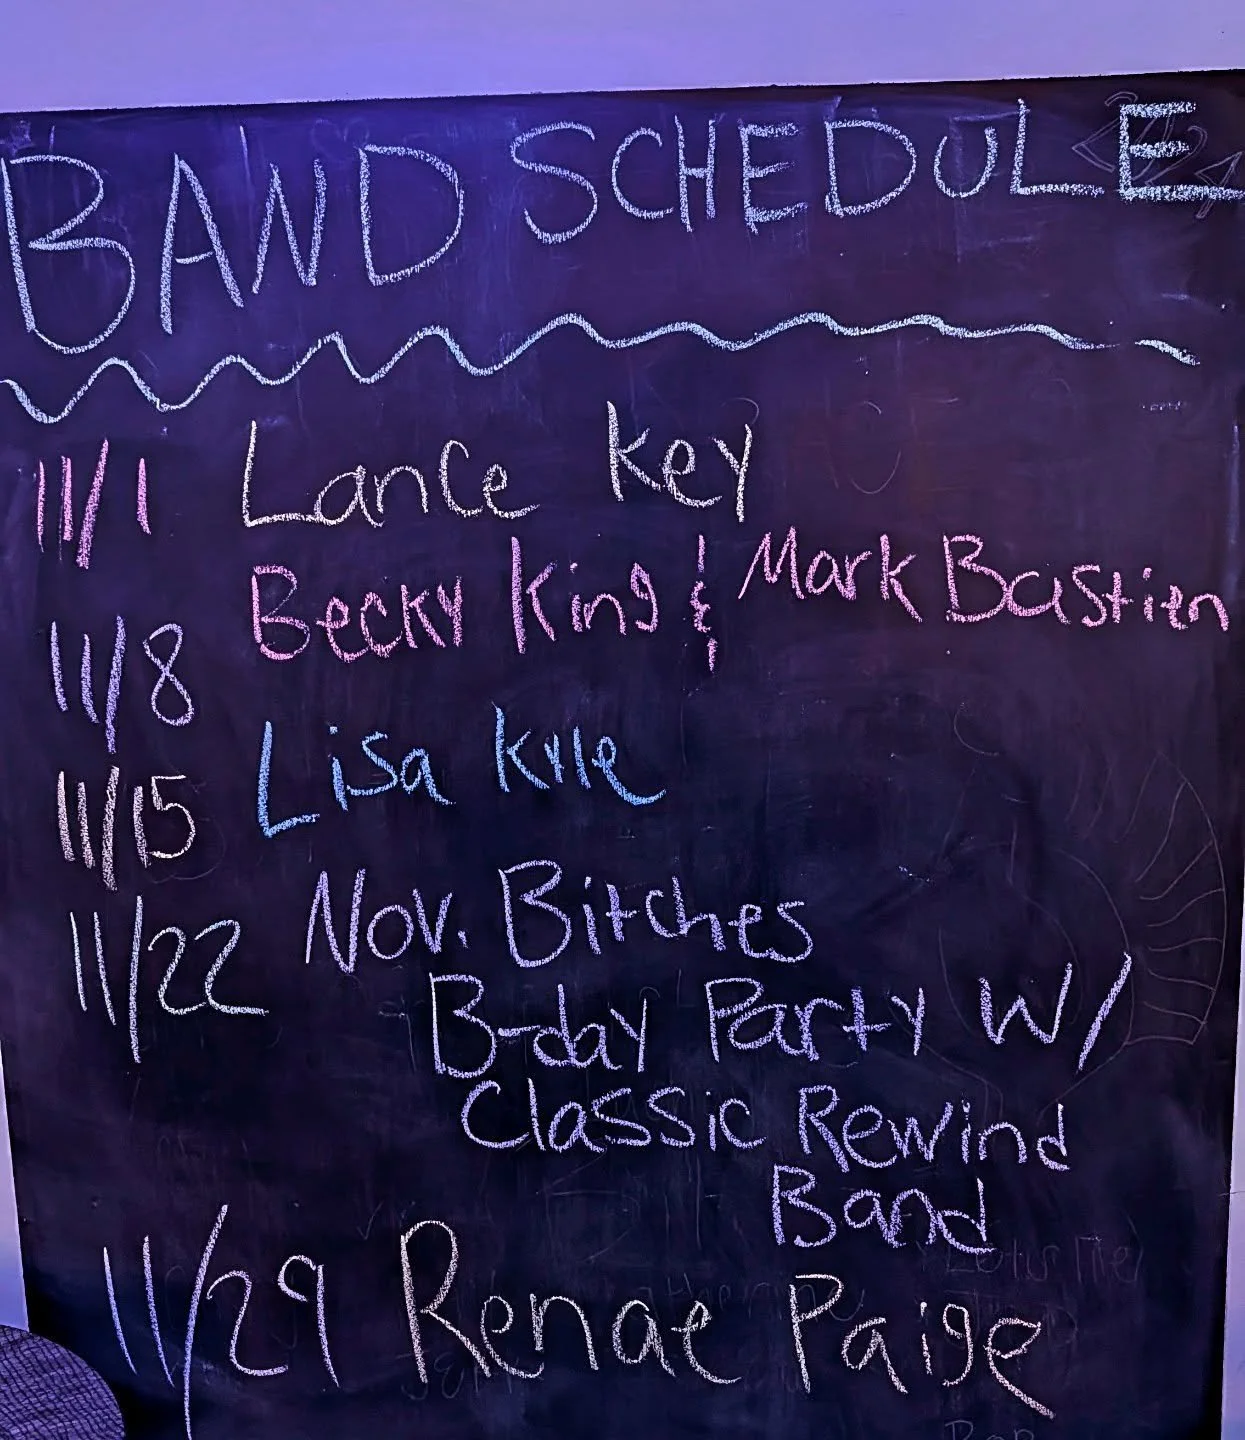 BAND SCHEDULE
11/1 Lance Key
11/8 Becky King & Mark Bastien
11/15 Lisa Kyle
11/22 Nov. Bitches
B-day Party W/
Classic Rewind
Band
11/29 Renae Paige